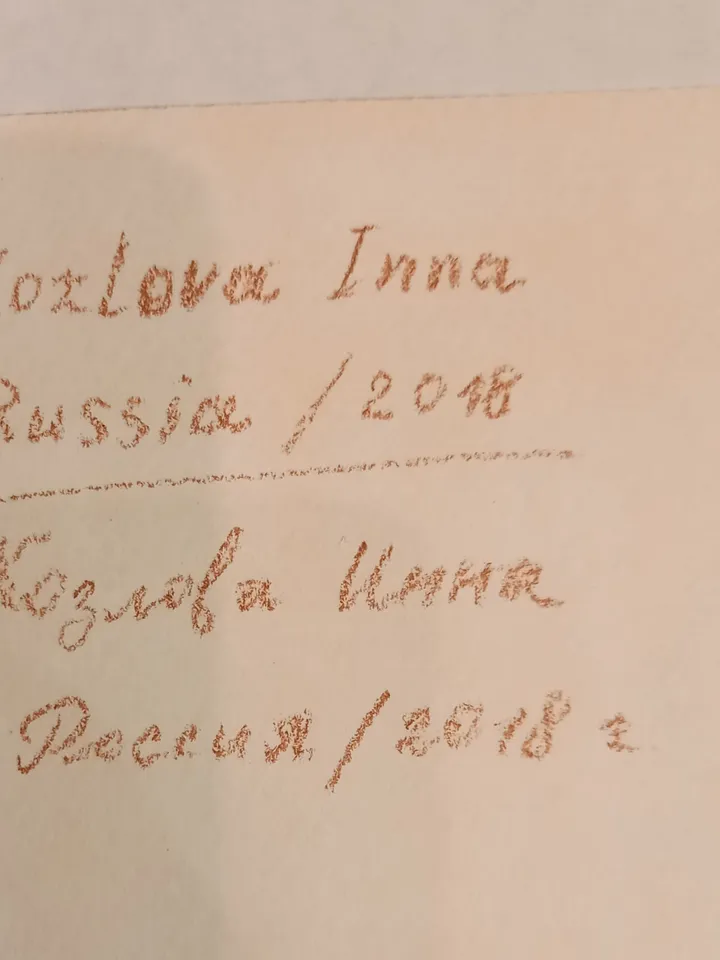 Kozlova Inna
Russia / 2018
Козлова Инна
Россия / 2018 г